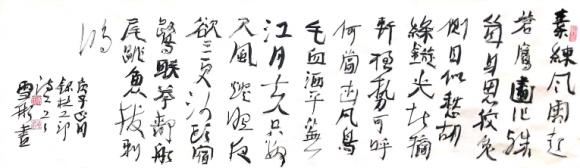 素練風霜起
蒼鷹畫作殊
㧐身思狡兔
側目似愁胡
絛鏇光堪摘
軒楹勢可呼
何當擊凡鳥
毛血洒平蕪
江月去人只數
尺風燈照夜
欲三更沙頭宿
鷺联拳靜船
尾跳魚拨刺
鳴
庚子正月
錄杜工部
詩二首